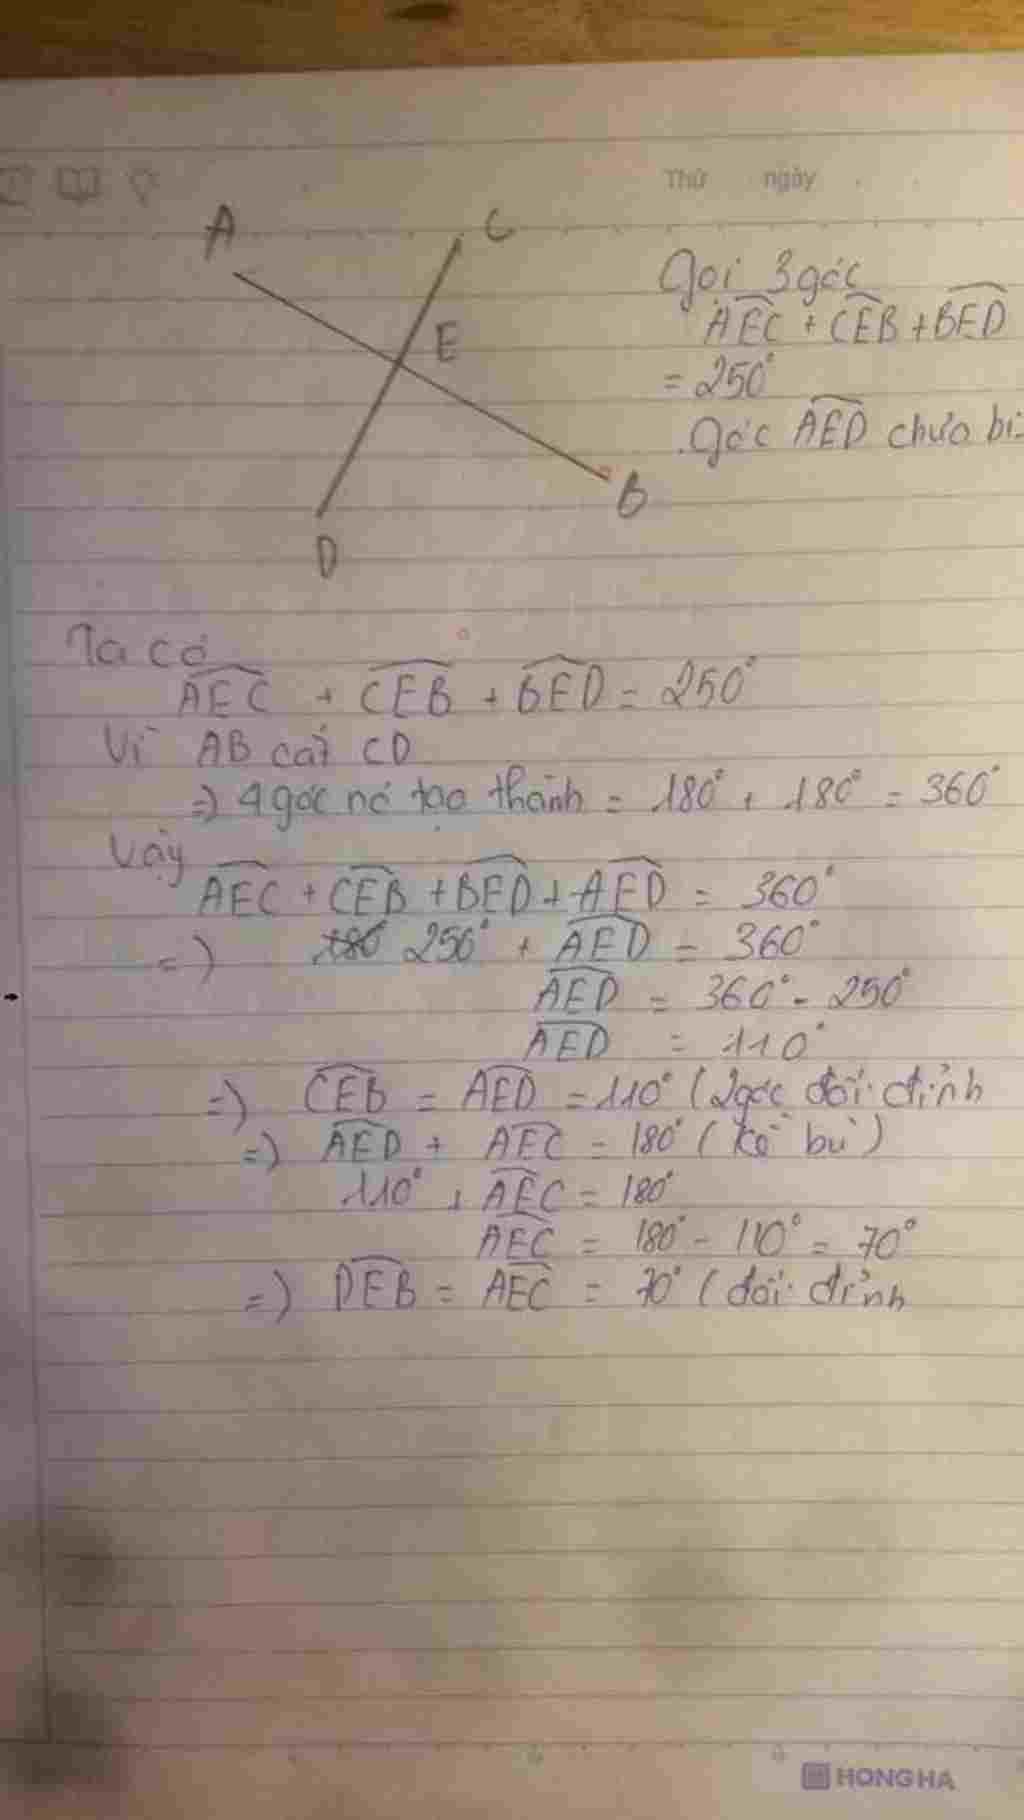 Thứ ngày
A
C
E
B
D
Gọi 3 góc
AEC + CEB + BED
= 250°
góc AED chưa bi
Ta có
AEC + CEB + BED = 250°
Vì AB cắt CD
=) 4 góc nó tạo thành = 180° + 180° = 360°
Vậy
AEC + CEB + BED + AED = 360°
=) 180 250° + AED = 360°
AED = 360° - 250°
AED = 110°
=) CEB = AED = 110° ( 2 góc đối đỉnh
=) AED + AEC = 180° ( kề bù )
110° + AEC = 180°
AEC = 180° - 110° = 70°
=) DEB = AEC = 70° ( đối đỉnh
HONG HA